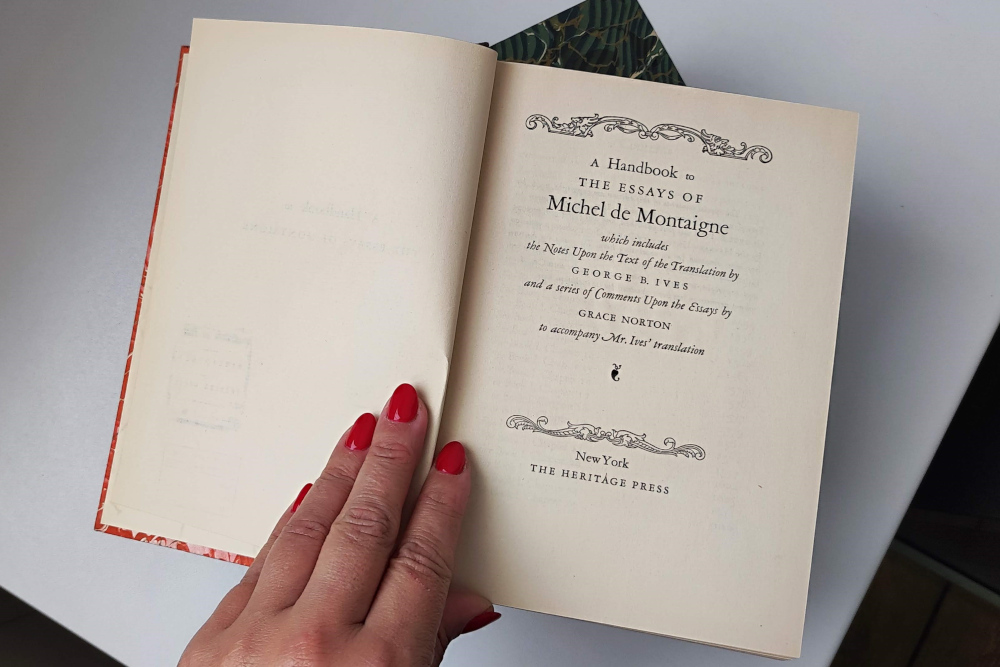 A Handbook to
THE ESSAYS OF
Michel de Montaigne
which includes
the Notes Upon the Text of the Translation by
GEORGE B. IVES
and a series of Comments Upon the Essays by
GRACE NORTON
to accompany Mr. Ives' translation
New York
THE HERITAGE PRESS